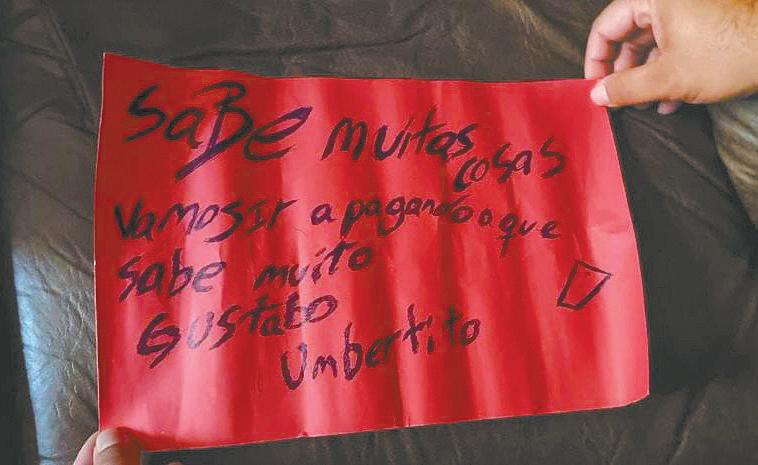 SaBe muitas
cosas
Vamosir apagando a que
Sabe muito
Gustabo
Umbertito